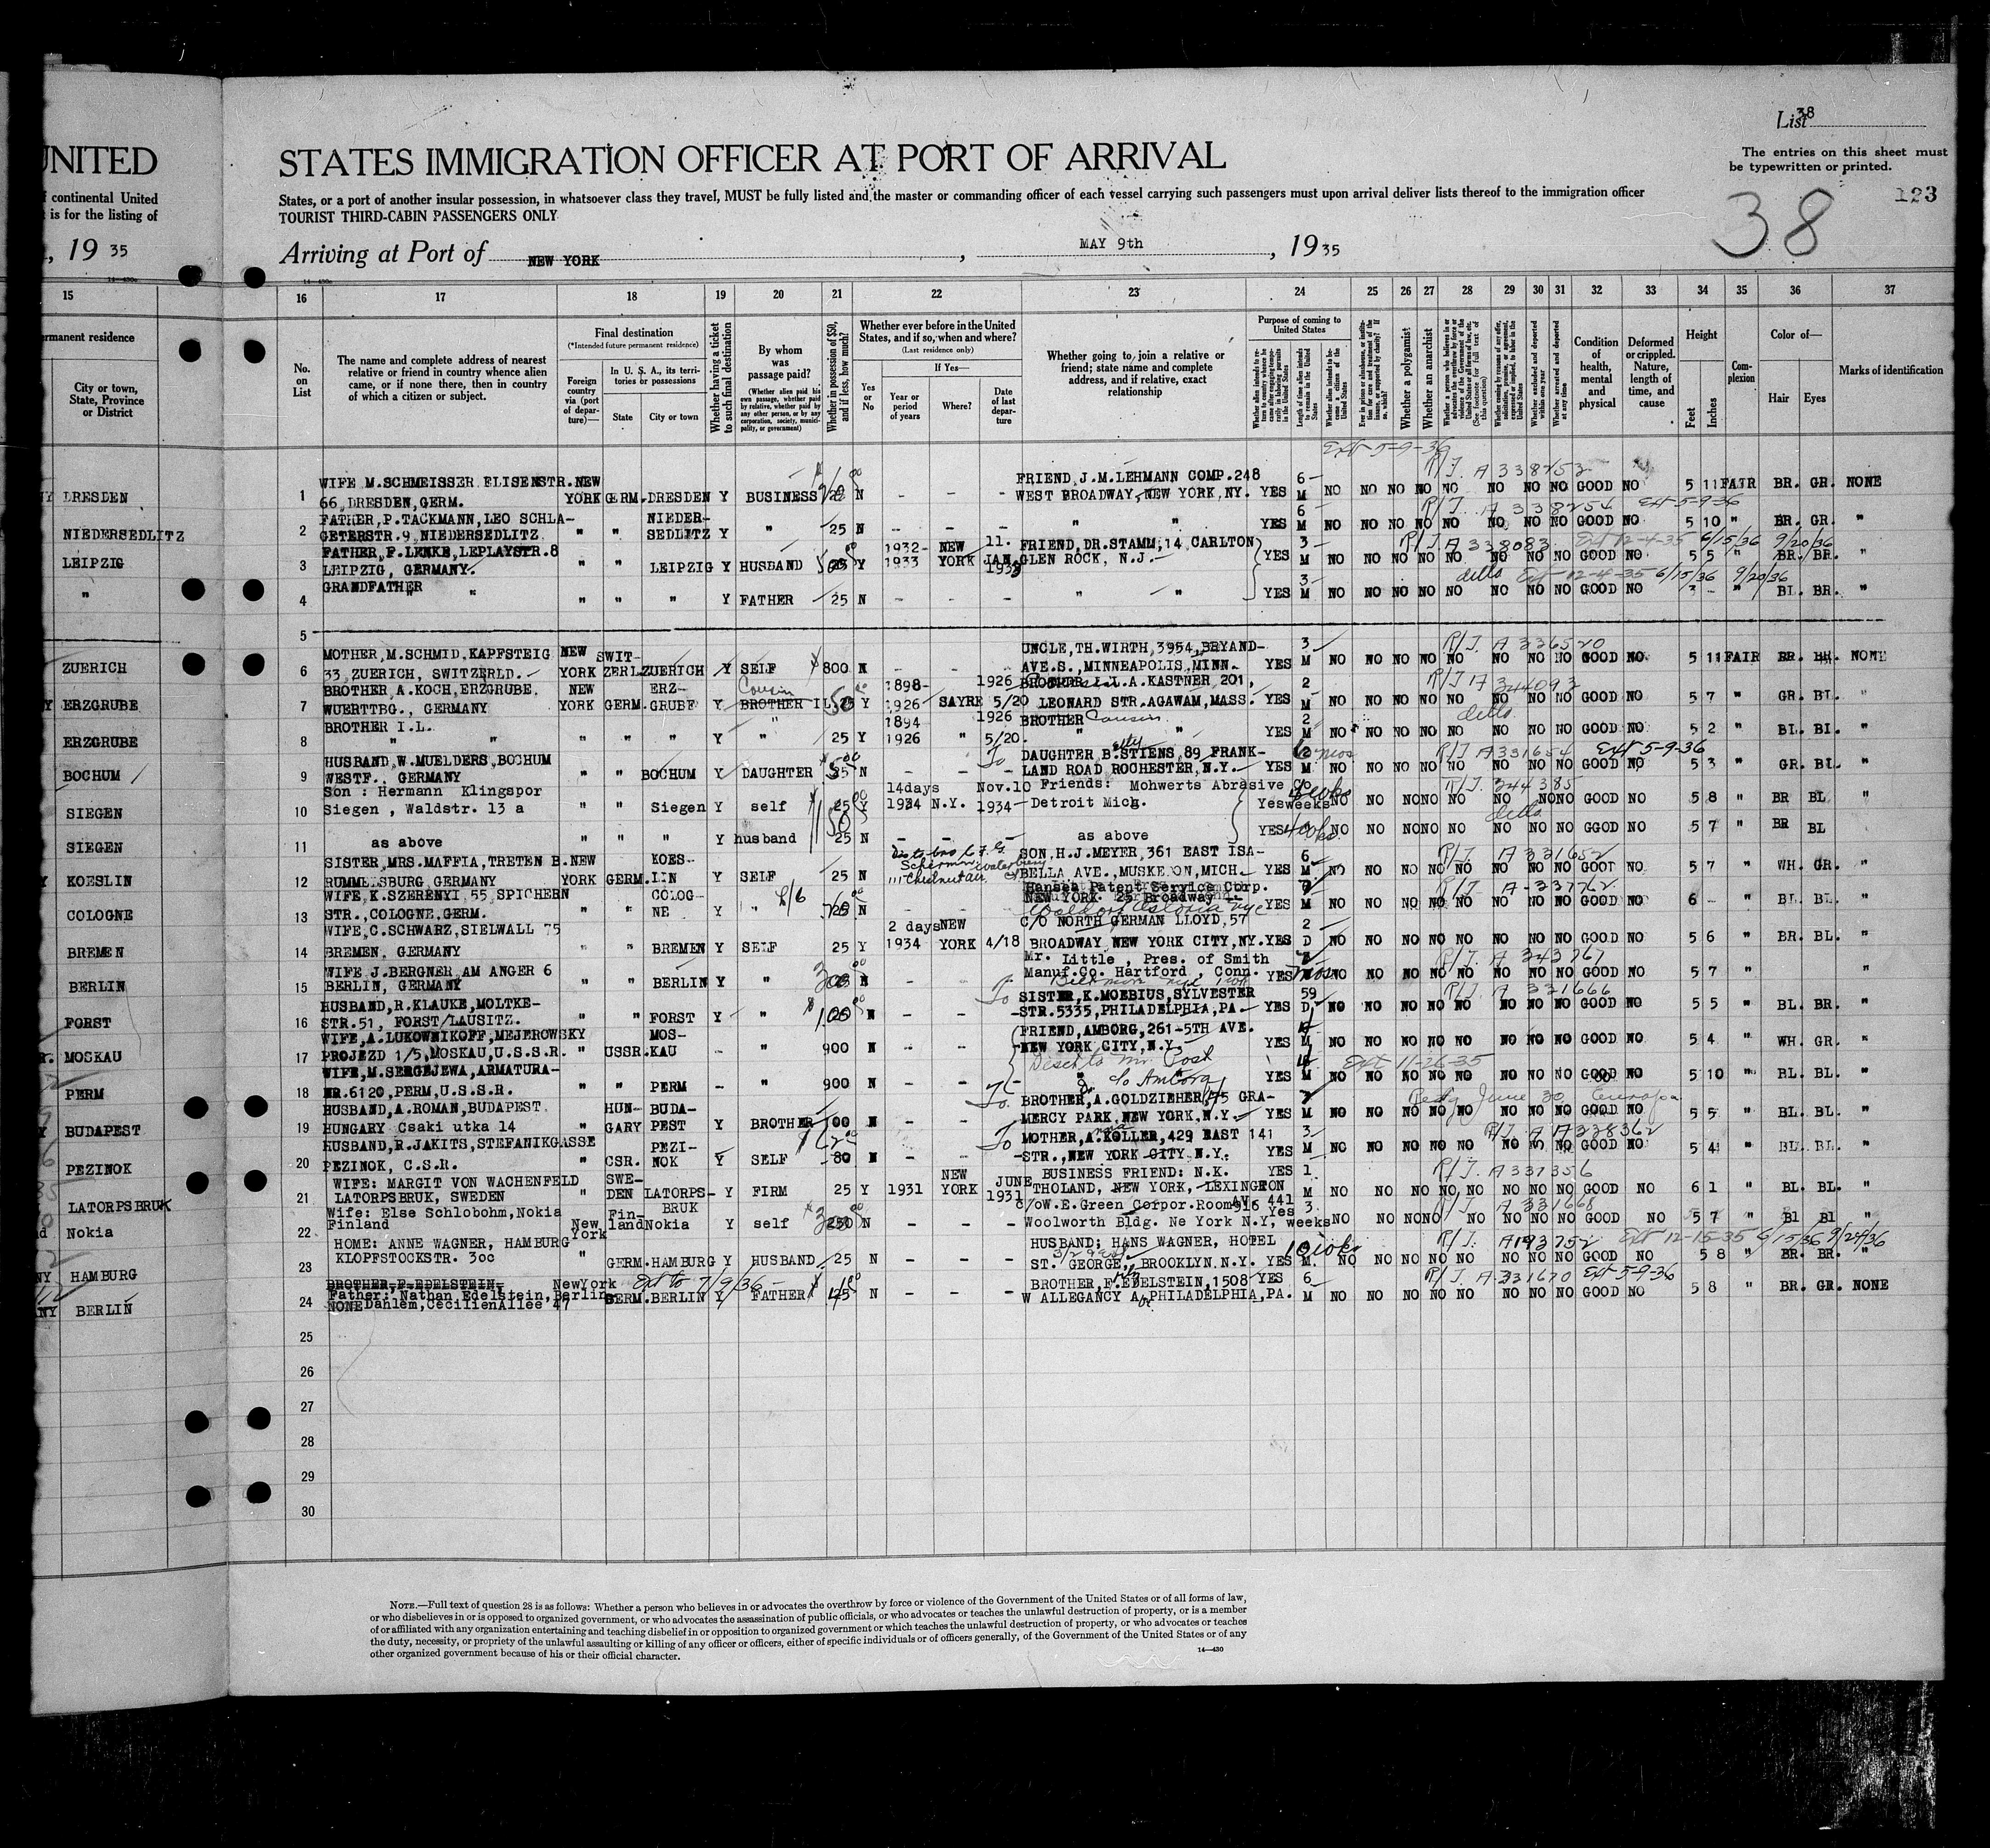 List 38
UNITED STATES IMMIGRATION OFFICER AT PORT OF ARRIVAL
The entries on this sheet must
be typewritten or printed.
f continental United
is for the listing of
States, or a port of another insular possession, in whatsoever class they travel, MUST be fully listed and the master or commanding officer of each vessel carrying such passengers must upon arrival deliver lists thereof to the immigration officer
TOURIST THIRD-CABIN PASSENGERS ONLY
38
123
, 19 35
Arriving at Port of NEW YORK, MAY 9th, 1935
15 16 17 18 19 20 21 22 23 24 25 26 27 28 29 30 31 32 33 34 35 36 37
rmanent residence
City or town,
State, Province
or District
No.
on
List
The name and complete address of nearest
relative or friend in country whence alien
came, or if none there, then in country
of which a citizen or subject.
Final destination
(*Intended future permanent residence)
Foreign
country
via (port
of depar-
ture)—
In U. S. A., its terri-
tories or possessions
State
City or town
Whether having a ticket
to such final destination
By whom
was
passage paid?
(Whether alien paid his
own passage, whether paid
by relative, whether paid by
any other person, or by any
corporation, society, munici-
pality, or government)
Whether in possession of $50,
and if less, how much?
Whether ever before in the United
States, and if so, when and where?
(Last residence only)
Yes
or
No
If Yes—
Year or
period
of years
Where?
Date
of last
depar-
ture
Whether going to join a relative or
friend; state name and complete
address, and if relative, exact
relationship
Purpose of coming to
United States
Length of time alien intends
to remain in the United
States
Whether alien intends to be-
come a citizen of the
United States
Whether a polygamist
Whether an anarchist
Whether excluded and deported
within one year
Whether arrested and deported
Condition
of
health,
mental
and
physical
Deformed
or crippled.
Nature,
length of
time, and
cause
Height
Feet
Inches
Com-
plexion
Color of—
Hair
Eyes
Marks of identification
Ext 5-9-36
R/J. A 338253
DRESDEN 1 WIFE M.SCHMEISSER ELISENSTR. NEW FRIEND, J.M.LEHMANN COMP.248 6
66, DRESDEN, GERM. YORK GERM. DRESDEN Y BUSINESS N - - - WEST BROADWAY, NEW YORK, NY. YES M NO NO NO NO NO NO NO NO GOOD NO 5 11 FAIR BR. GR. NONE
R/J. A 338254 Ext 5-9-36
NIEDERSEDLITZ 2 FATHER, P.TACKMANN, LEO SCHLA- NIEDER- 6
GETERSTR.9, NIEDERSEDLITZ " " SEDLITZ Y " 25 N - - - " " YES M NO NO NO NO NO NO NO NO GOOD NO 5 10 " BR. GR. "
R/J A 338083 Ext 12-4-35 6/15/36 9/20/36
LEIPZIG 3 FATHER, F.LENKE, LEPLAYSTR.8 1932- NEW 11. FRIEND, DR.STAMM, 14 CARLTON 3
LEIPZIG, GERMANY. " " LEIPZIG Y HUSBAND Y 1933 YORK JAN. 1933 GLEN ROCK, N.J. YES M NO NO NO NO NO NO NO NO GOOD NO 5 5 " BR. BR. "
ditto Ext 12-4-35 6/15/36 9/20/36
" 4 GRANDFATHER " " 3
" " " Y FATHER 25 N - - - " " YES M NO NO NO NO NO NO NO NO GOOD NO - - " BL. BR. "
5
R/J. A 336520
ZUERICH 6 MOTHER, M.SCHMID, KAPFSTEIG NEW SWIT- UNCLE, TH.WIRTH, 3954, BRYAND- 3
33, ZUERICH, SWITZERLD. YORK ZERL. ZUERICH Y SELF $800 N - - - AVE.S., MINNEAPOLIS, MINN. YES M NO NO NO NO NO NO NO NO GOOD NO 5 11 FAIR NONE
R/J A 344093
ERZGRUBE 7 BROTHER, A.KOCH, ERZGRUBE, NEW ERZ- Cousin 1898- 1926 BROTHER I.L.A.KASTNER, 201, 2
WUERTTBG., GERMANY YORK GERM. GRUBE Y BROTHER IL 50 Y 1926 SAYRE 5/20 LEONARD STR. AGAWAM, MASS. YES M NO NO NO NO NO NO NO NO GOOD NO 5 7 " GR. BL. "
ditto
ERZGRUBE 8 BROTHER I.L. 1894 1926 BROTHER Cousin 2
" " " " " Y " 25 Y 1926 " 5/20. " " YES M NO NO NO NO NO NO NO NO GOOD NO 5 2 " BL. BL. "
R/J A 331654 Ext 5-9-36
BOCHUM 9 HUSBAND, W.MUELDERS, BOCHUM To DAUGHTER B.STIENS, 89 FRANK- 6 mos
WESTF., GERMANY " " BOCHUM Y DAUGHTER N - - - LAND ROAD ROCHESTER, N.Y. YES M NO NO NO NO NO NO NO NO GOOD NO 5 3 " GR. BL. "
R/J. 244385
SIEGEN 10 Son : Hermann Klingspor 14days Nov.10 Friends: Mohwerts Abrasive Co
Siegen , Waldstr. 13 a " " Siegen Y self 25 Y 1934 N.Y. 1934 Detroit Mich. Yes weeks NO NO NO NO NO NO NO NO GOOD NO 5 8 " BR BL "
ditto
SIEGEN 11 as above " " " Y husband 25 N - - - as above YES 4 wks NO NO NO NO NO NO NO NO GGOD NO 5 7 " BR BL
R/J. A 331652
KOESLIN 12 SISTER, MRS. MAFFIA, TRETEN B. NEW KOES- SON, H.J.MEYER, 361 EAST ISA- 6
RUMMELSBURG GERMANY YORK GERM. LIN Y SELF 25 N 111 Chestnut ave BELLA AVE., MUSKEGON, MICH. YES M NO NO NO NO NO NO NO NO GOOD NO 5 7 " WH. GR. "
R/J. A-337762
COLOGNE 13 WIFE, K.SZERENYI, 55, SPICHERN COLOG- Hansea Patent Service Corp.
STR., COLOGNE, GERM. " " NE Y " N - - NEW YORK. 25 Broadway Waldorf Astoria nyc YES M NO NO NO NO NO NO NO NO GOOD NO 6 - " BL. BL. "
BREMEN 14 WIFE, C.SCHWARZ, SIELWALL 75 2 days NEW C/O NORTH GERMAN LLOYD, 57 2
BREMEN, GERMANY " " BREMEN Y SELF 25 Y 1934 YORK 4/18 BROADWAY NEW YORK CITY, NY. YES D NO NO NO NO NO NO NO NO GOOD NO 5 6 " BR. BL. "
R/J. A 343767
BERLIN 15 WIFE J.BERGNER, AM ANGER 6 Mr. Little , Pres. of Smith
BERLIN, GERMANY " " BERLIN Y " 300 N - - Manuf.Co. Hartford , Conn. YES NO NO NO NO NO NO NO NO GOOD NO 5 7 " "
R/J. A 331666
FORST 16 HUSBAND, R.KLAUKE, MOLTKE- To SISTER, K.MOEBIUS, SYLVESTER 59
STR.51, FORST/LAUSITZ. " " FORST Y " 100 N - - - STR.5335, PHILADELPHIA, PA YES D NO NO NO NO NO NO NO NO GOOD NO 5 5 " BL. BR. "
MOSKAU 17 WIFE, A.LUKOWNIKOFF, MEJEROWSKY MOS- FRIEND, AMBORG, 261-5TH AVE.
PROJEZD 1/5, MOSKAU, U.S.S.R. " USSR. KAU - " 900 N - - - NEW YORK CITY, N.Y. YES M NO NO NO NO NO NO NO NO GOOD NO 5 4 " WH. GR. "
Ext 11-26-35
PERM 18 WIFE, M.SERGEJEWA, ARMATURA-
NR.6120, PERM, U.S.S.R. " " PERM - " 900 N - - - " c/o Amtorg YES M NO NO NO NO NO NO NO NO GOOD NO 5 10 " BL. BL. "
June 30 Europa
BUDAPEST 19 HUSBAND, A.ROMAN, BUDAPEST HUN- BUDA- To BROTHER, A.GOLDZIEHER, 45 GRA-
HUNGARY Csaki utka 14 " GARY PEST Y BROTHER 100 N - - - MERCY PARK, NEW YORK, N.Y. YES M NO NO NO NO NO NO NO NO GOOD NO 5 5 " BL. BL. "
R/J. A 338362
PEZINOK 20 HUSBAND, R.JAKITS, STEFANIKGASSE PEZI- To MOTHER, A.KOLLER, 429 EAST 141 3
PEZINOK, C.S.R. " CSR. NOK Y SELF N - - - STR., NEW YORK CITY N.Y. YES M NO NO NO NO NO NO NO NO GOOD NO 5 4 " BL. BL. "
R/J. A 337356
LATORPSBRUK 21 WIFE: MARGIT VON WACHENFELD SWE- NEW JUNE BUSINESS FRIEND: N.K. YES 1
LATORPSBRUK, SWEDEN DEN LATORPS- BRUK Y FIRM 25 Y 1931 YORK 1931 THOLAND, NEW YORK, LEXINGTON AV. 441 M NO NO NO NO NO NO NO NO GOOD NO 6 1 " BL. BL. "
R/J A 331668
Nokia 22 Wife: Else Schlobohm, Nokia New Fin- c/o W.E.Green Corpor.Room 916 Yes 3
Finland York land Nokia Y self N - - - Woolworth Bldg. Ne York N.Y, weeks NO NO NO NO NO NO NO NO GOOD NO 5 7 " Bl Bl "
R/J. A 193752 Ext 12-15-35 6/15/36 9/24/36
HAMBURG 23 HOME: ANNE WAGNER, HAMBURG HUSBAND; HANS WAGNER, HOTEL 10 wks
KLOPFSTOCKSTR. 3oc " GERM. HAMBURG Y HUSBAND 25 N - - - ST. GEORGE, BROOKLYN N.Y. YES M. NO NO NO NO NO NO NO NO GOOD NO 5 8 " BR. BR. "
R/J. A-331670 Ext 5-9-36
BERLIN 24 BROTHER, F.EDELSTEIN, NewYork Ext to 7/9/36 BROTHER, F.EDELSTEIN, 1508 YES 6
Father: Nathan Edelstein, Berlin
NONE Dahlem, CecilienAllee 47 GERM. BERLIN Y FATHER N - - - W ALLEGANCY A, PHILADELPHIA, PA. M NO NO NO NO NO NO NO NO GOOD NO 5 8 " BR. GR. NONE
25
26
27
28
29
30
NOTE.—Full text of question 28 is as follows: Whether a person who believes in or advocates the overthrow by force or violence of the Government of the United States or of all forms of law,
or who disbelieves in or is opposed to organized government, or who advocates the assassination of public officials, or who advocates or teaches the unlawful destruction of property, or is a member
of or affiliated with any organization entertaining and teaching disbelief in or opposition to organized government or which teaches the unlawful destruction of property, or who advocates or teaches
the duty, necessity, or propriety of the unlawful assaulting or killing of any officer or officers, either of specific individuals or of officers generally, of the Government of the United States or of any
other organized government because of his or their official character.
14—430